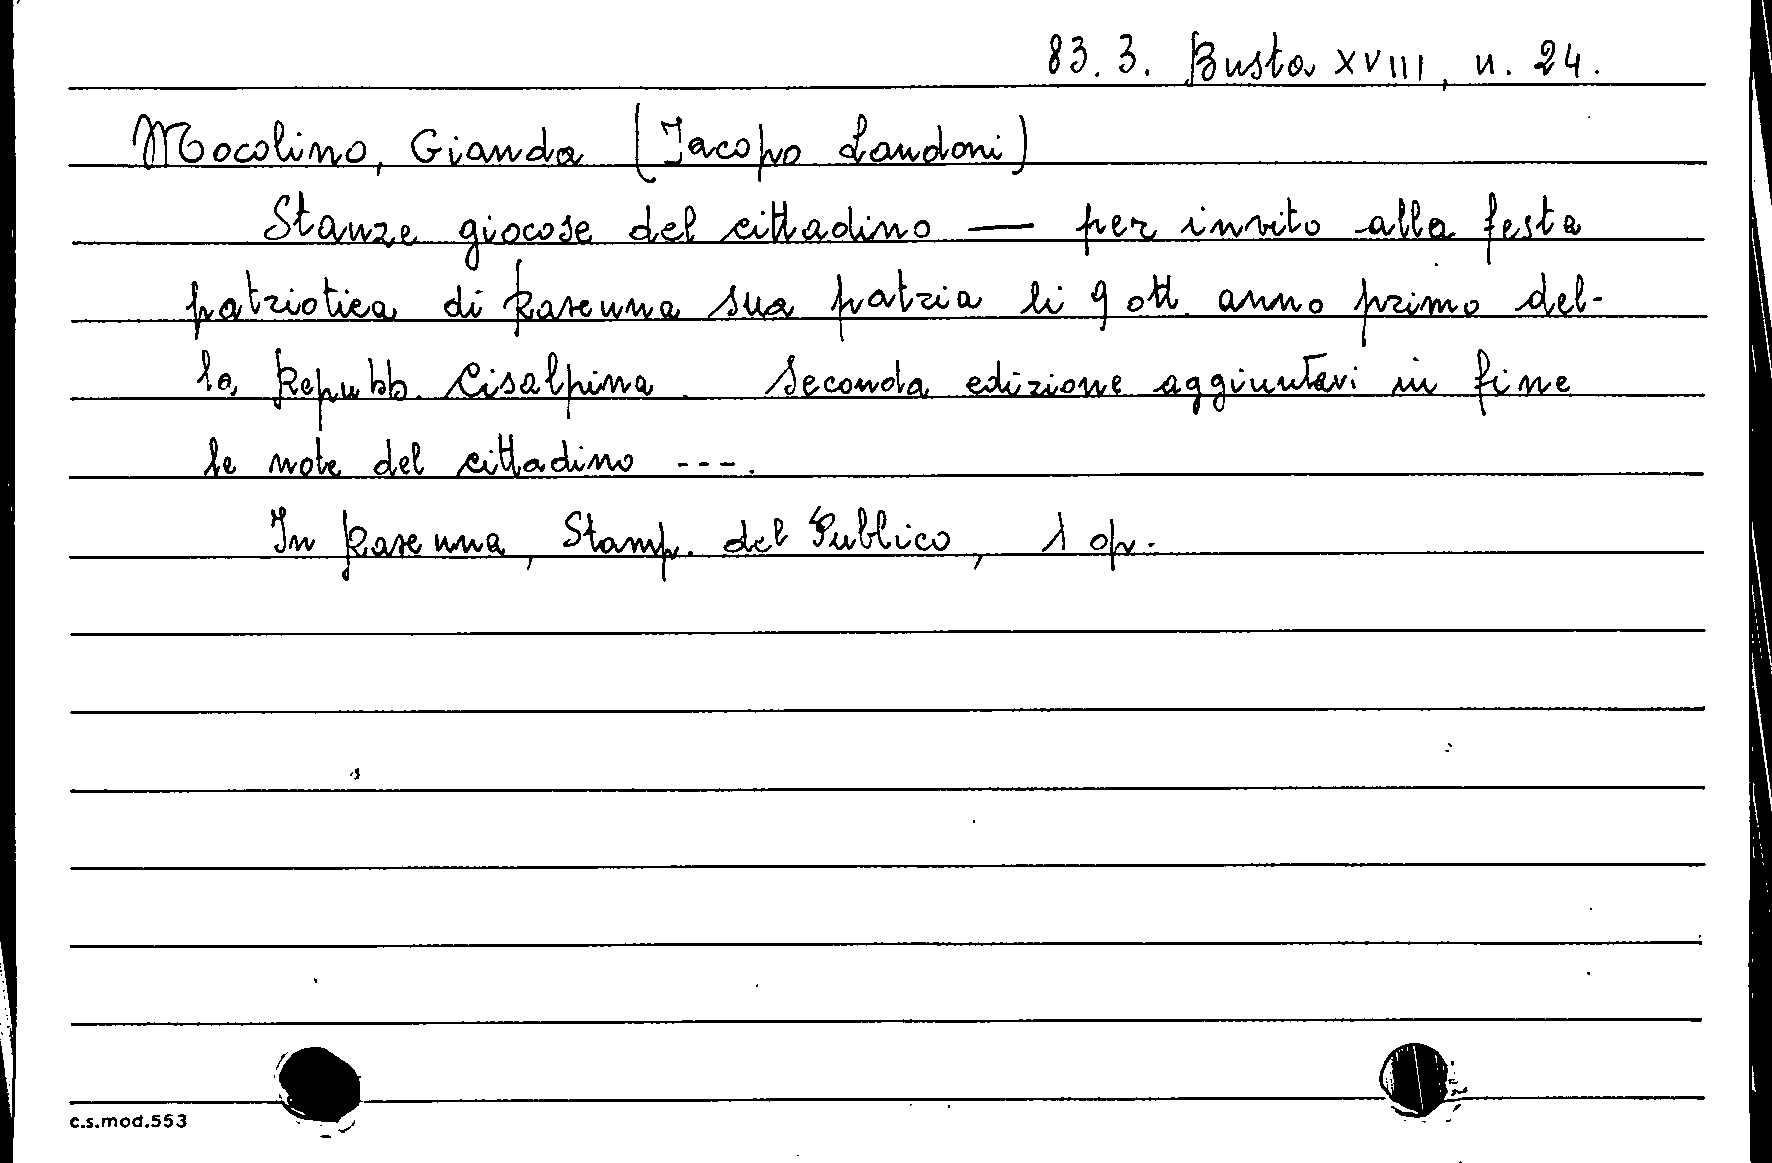 83.3. Busta XVIII, n. 24.
Mocolino, Gianda (Jacopo Landoni)
Stanze giocose del cittadino — per invito alla festa
patriotica di Ravenna sua patria li 9 ott. anno primo del-
la Repubb. Cisalpina. Seconda edizione aggiuntavi in fine
le note del cittadino ---.
In Ravenna, Stamp. del Publico, 1 op.
c.s.mod.553